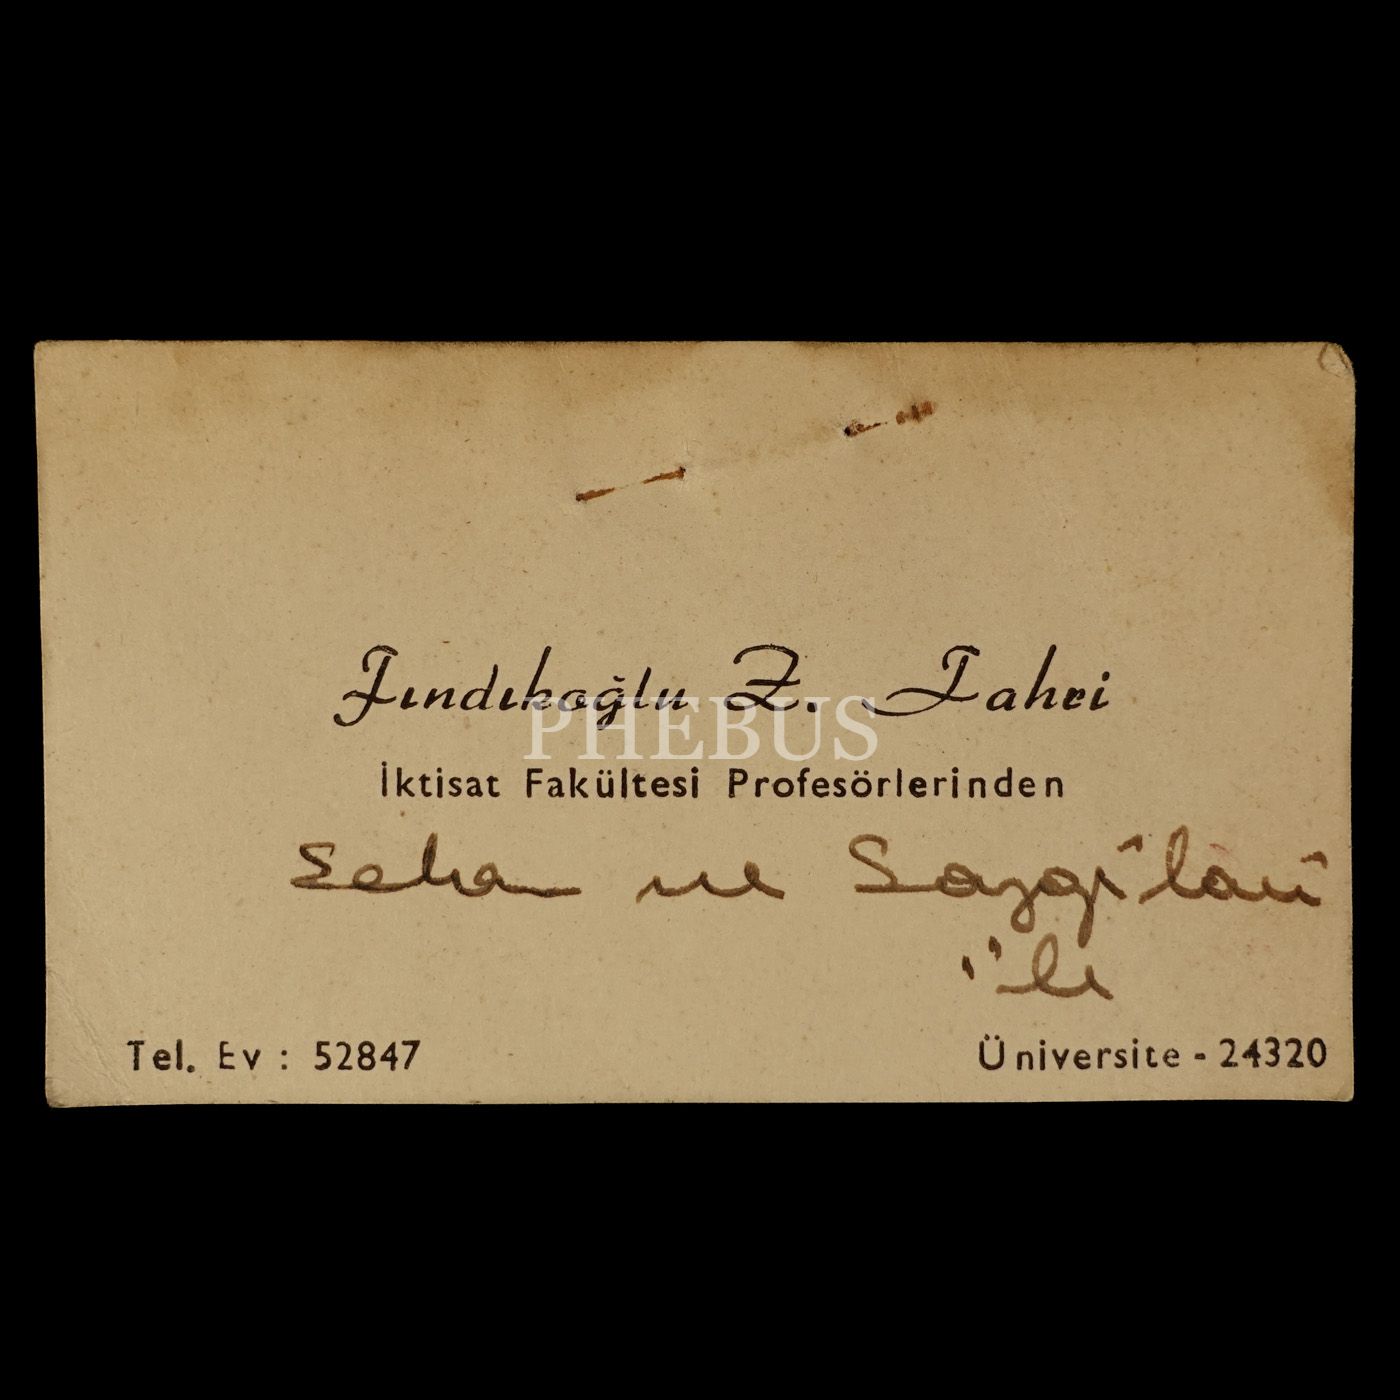 Fındıkoğlu Z. Fahri
PHEBUS
İktisat Fakültesi Profesörlerinden
Selam ve Saygıları
ile
Tel. Ev : 52847
Üniversite - 24320